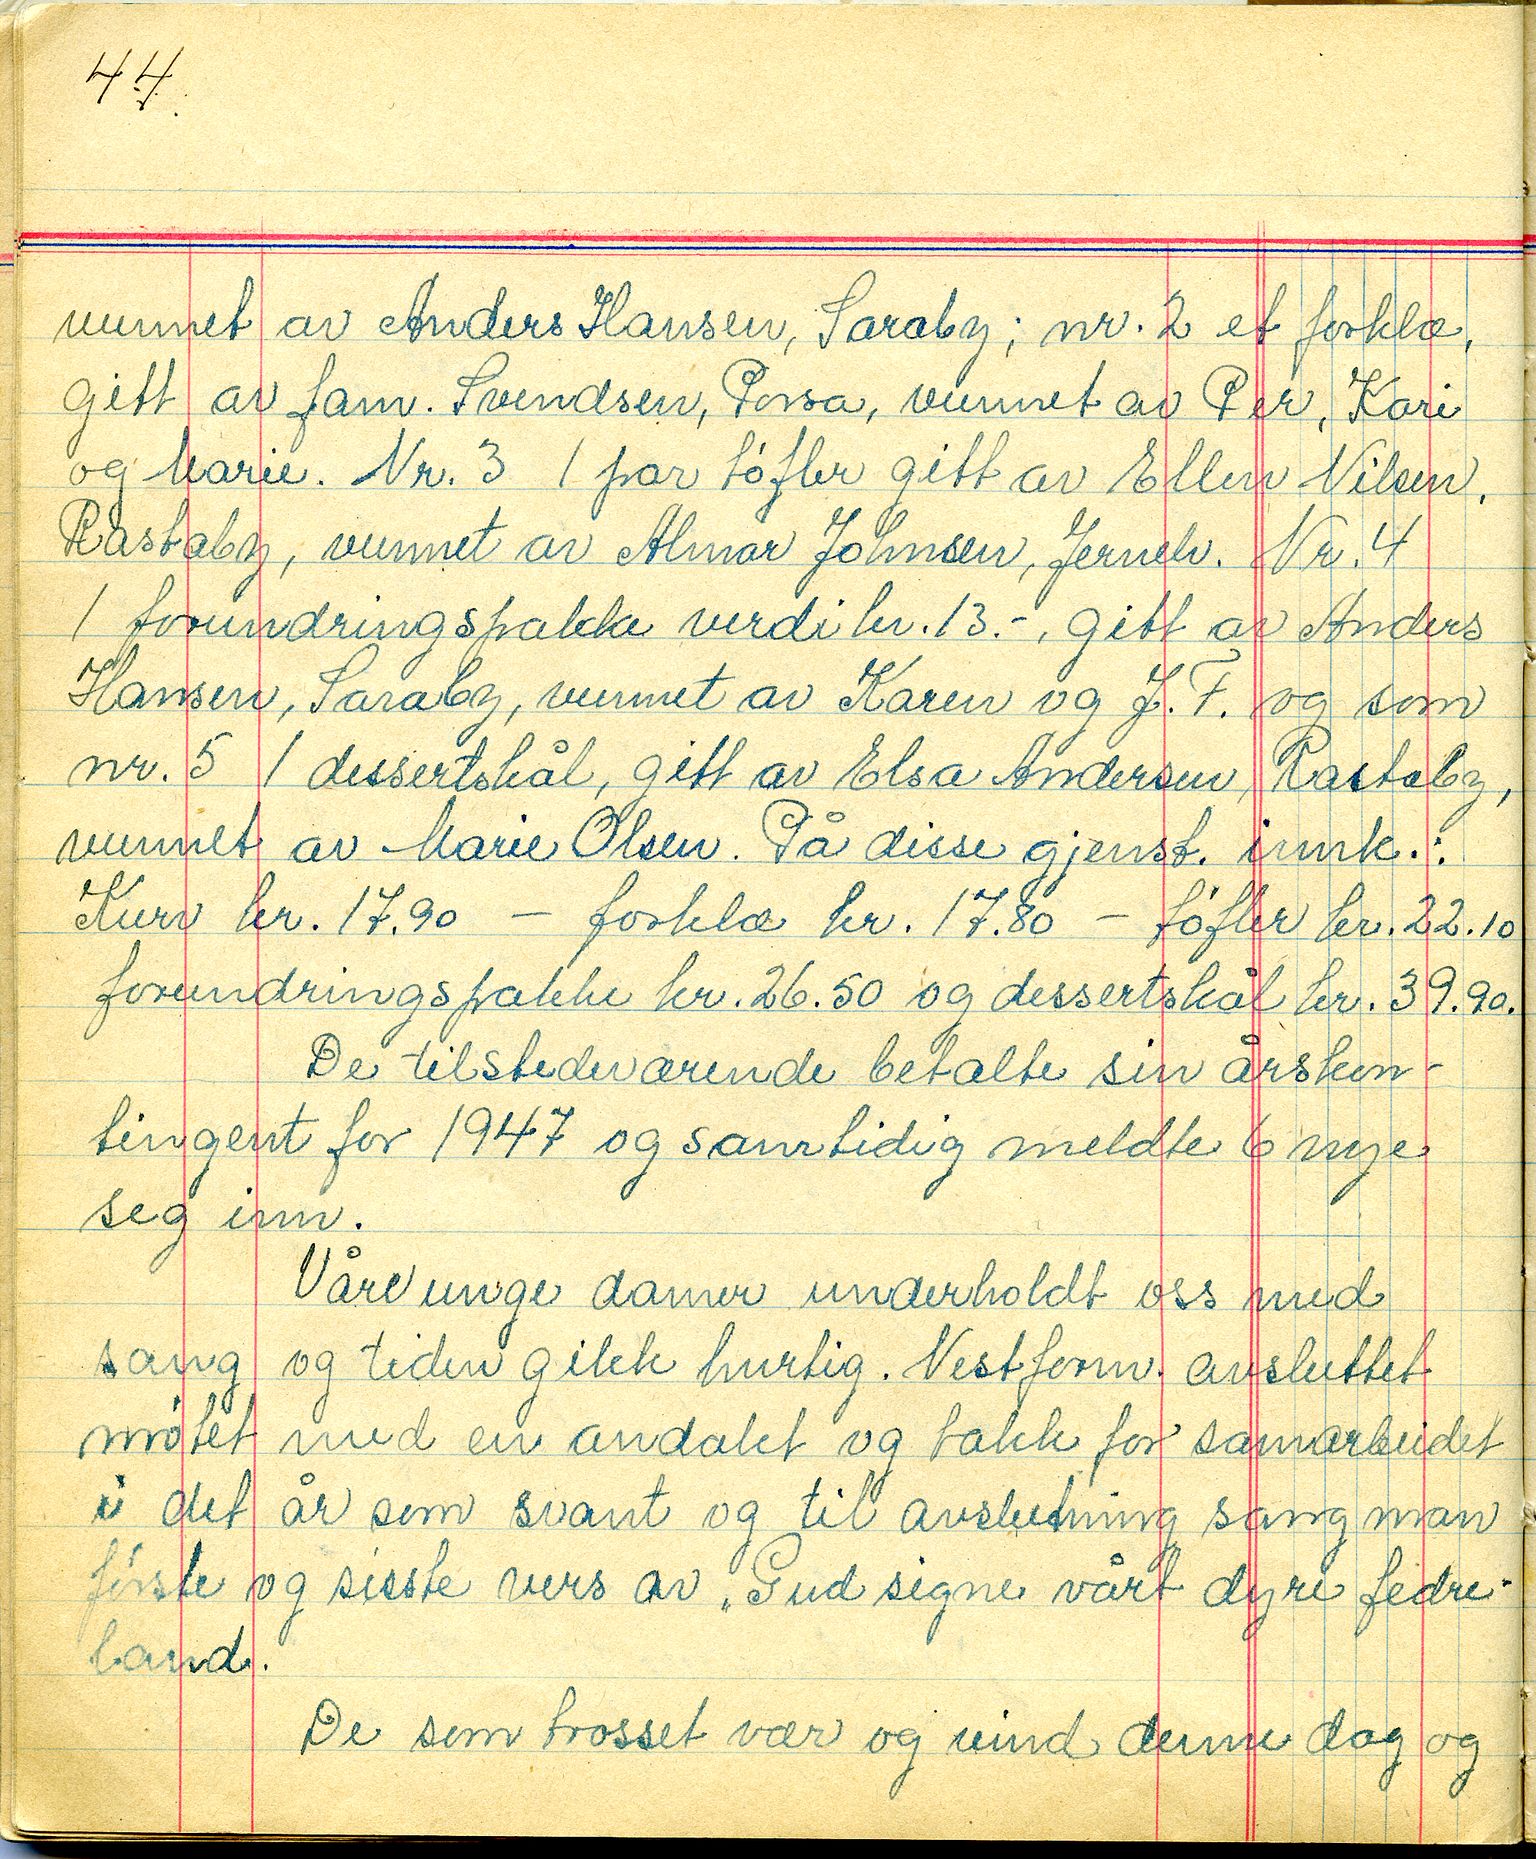 44.
vunnet av Anders Hansen, Saraby; nr. 2 et forklæ,
gitt av fam. Svendsen, Porsa, vunnet av Per, Kari
og Marie. Nr. 3 1 par tøfler gitt av Ellen Nilsen,
Rastaby, vunnet av Almar Johnsen, Jernelv. Nr. 4
1 forundringspakke verdi kr. 13.-, gitt av Anders
Hansen, Saraby, vunnet av Karen og J. F. og som
nr. 5 1 dessertskål, gitt av Elsa Andersen, Rastaby,
vunnet av Marie Olsen. På disse gjenst. innk.:
Kurv kr. 17.90 - forklæ kr. 17.80 - tøfler kr. 22.10
forundringspakke kr. 26.50 og dessertskål kr. 39.90.
De tilstedeværende betalte sin årskon-
tingent for 1947 og samtidig meldte 6 nye
seg inn.
Våre unge damer underholdt oss med
sang og tiden gikk hurtig. Nestform. avsluttet
møtet med en andakt og takk for samarbeidet
i det år som svant og til avslutning sang man
første og siste vers av „Gud signe vårt dyre fedre-
land.
De som trosset vær og vind denne dag og